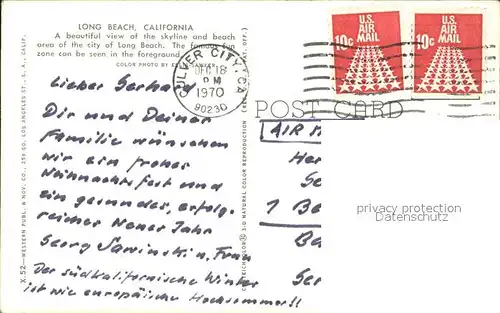 LONG BEACH, CALIFORNIA
A beautiful view of the skyline and beach
area of the city of Long Beach. The famous fun
zone can be seen in the foreground.
COLOR PHOTO BY
CULVER CITY, CA
DEC 18
PM
1970
90230
U.S.
AIR
MAIL
10c
U.S.
AIR
MAIL
10c
POST CARD
Lieber Gerhard
Dir und Deiner
Familie wünschen
wir ein frohes
Weihnachtsfest und
ein gesundes, erfolg-
reiches Neues Jahr
Georg Sawinski u. Frau
Der südkalifornische Winter
ist wie europäische Hochsommer!!
AIR M
Her
Se
1 Be
Be
Ser
privacy protection
Datenschutz
X.52—WESTERN PUBL. & NOV. CO., 259 SO. LOS ANGELES ST., L. A., CALIF.
3-D NATURAL COLOR REPRODUCTION